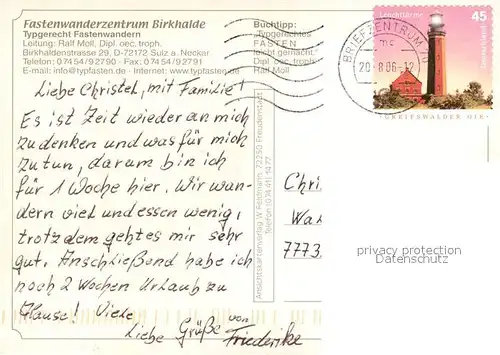 Fastenwanderzentrum Birkhalde
Typgerecht Fastenwandern
Leitung: Ralf Moll, Dipl. oec. troph.
Birkhaldenstrasse 29, D-72172 Sulz a. Neckar
Telefon: 0 74 54/9 27 90 - Fax: 0 74 54/9 27 91
E-mail: info@typfasten.de - Internet: www.typfasten.de
Buchtipp:
"Typgerechtes
FASTEN
leicht gemacht"
Dipl. oec. troph.
Ralf Moll
Leuchttürme
45
Deutschland
GREIFSWALDER OIE
BRIEFZENTRUM
mc
20.8.06-12
Liebe Christel, mit Familie!
Es ist Zeit wieder an mich
zu denken und was für mich
zu tun, darum bin ich
für 1 Woche hier. Wir wan-
dern viel und essen wenig,
trotzdem geht es mir sehr
gut. Anschließend habe ich
noch 2 Wochen Urlaub zu
Hause! Viele
Liebe Grüße von
Friederike
Ansichtskartenverlag W. Feldmann, 72250 Freudenstadt
Telefon (0 74 41) 14 77
Chri
Wa
7773
privacy protection
Datenschutz